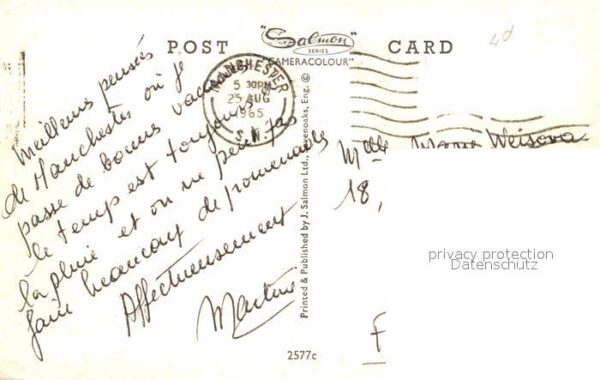 POST "Salmon" CARD
SERIES
CAMERACOLOUR"
4d
MANCHESTER
5 30PM
25 AUG
1965
Meilleurs pensées
de Manchester où je
passe de bonnes vacances
le temps est toujours à
la pluie et on ne peut pas
faire beaucoup de promenades
Affectueusement
Martine
Printed & Published by J. Salmon Ltd., Sevenoaks, Eng. ©
Melle Marie Weisova
18,
F
privacy protection
Datenschutz
2577c